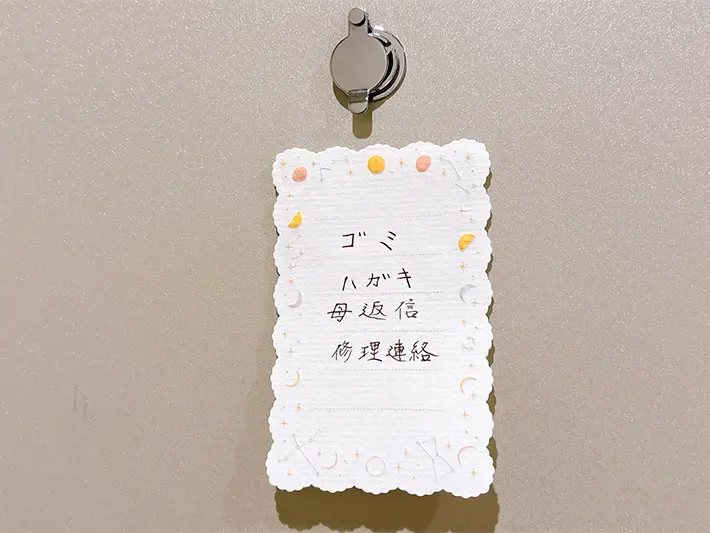 ゴミ
ハガキ
母返信
修理連絡